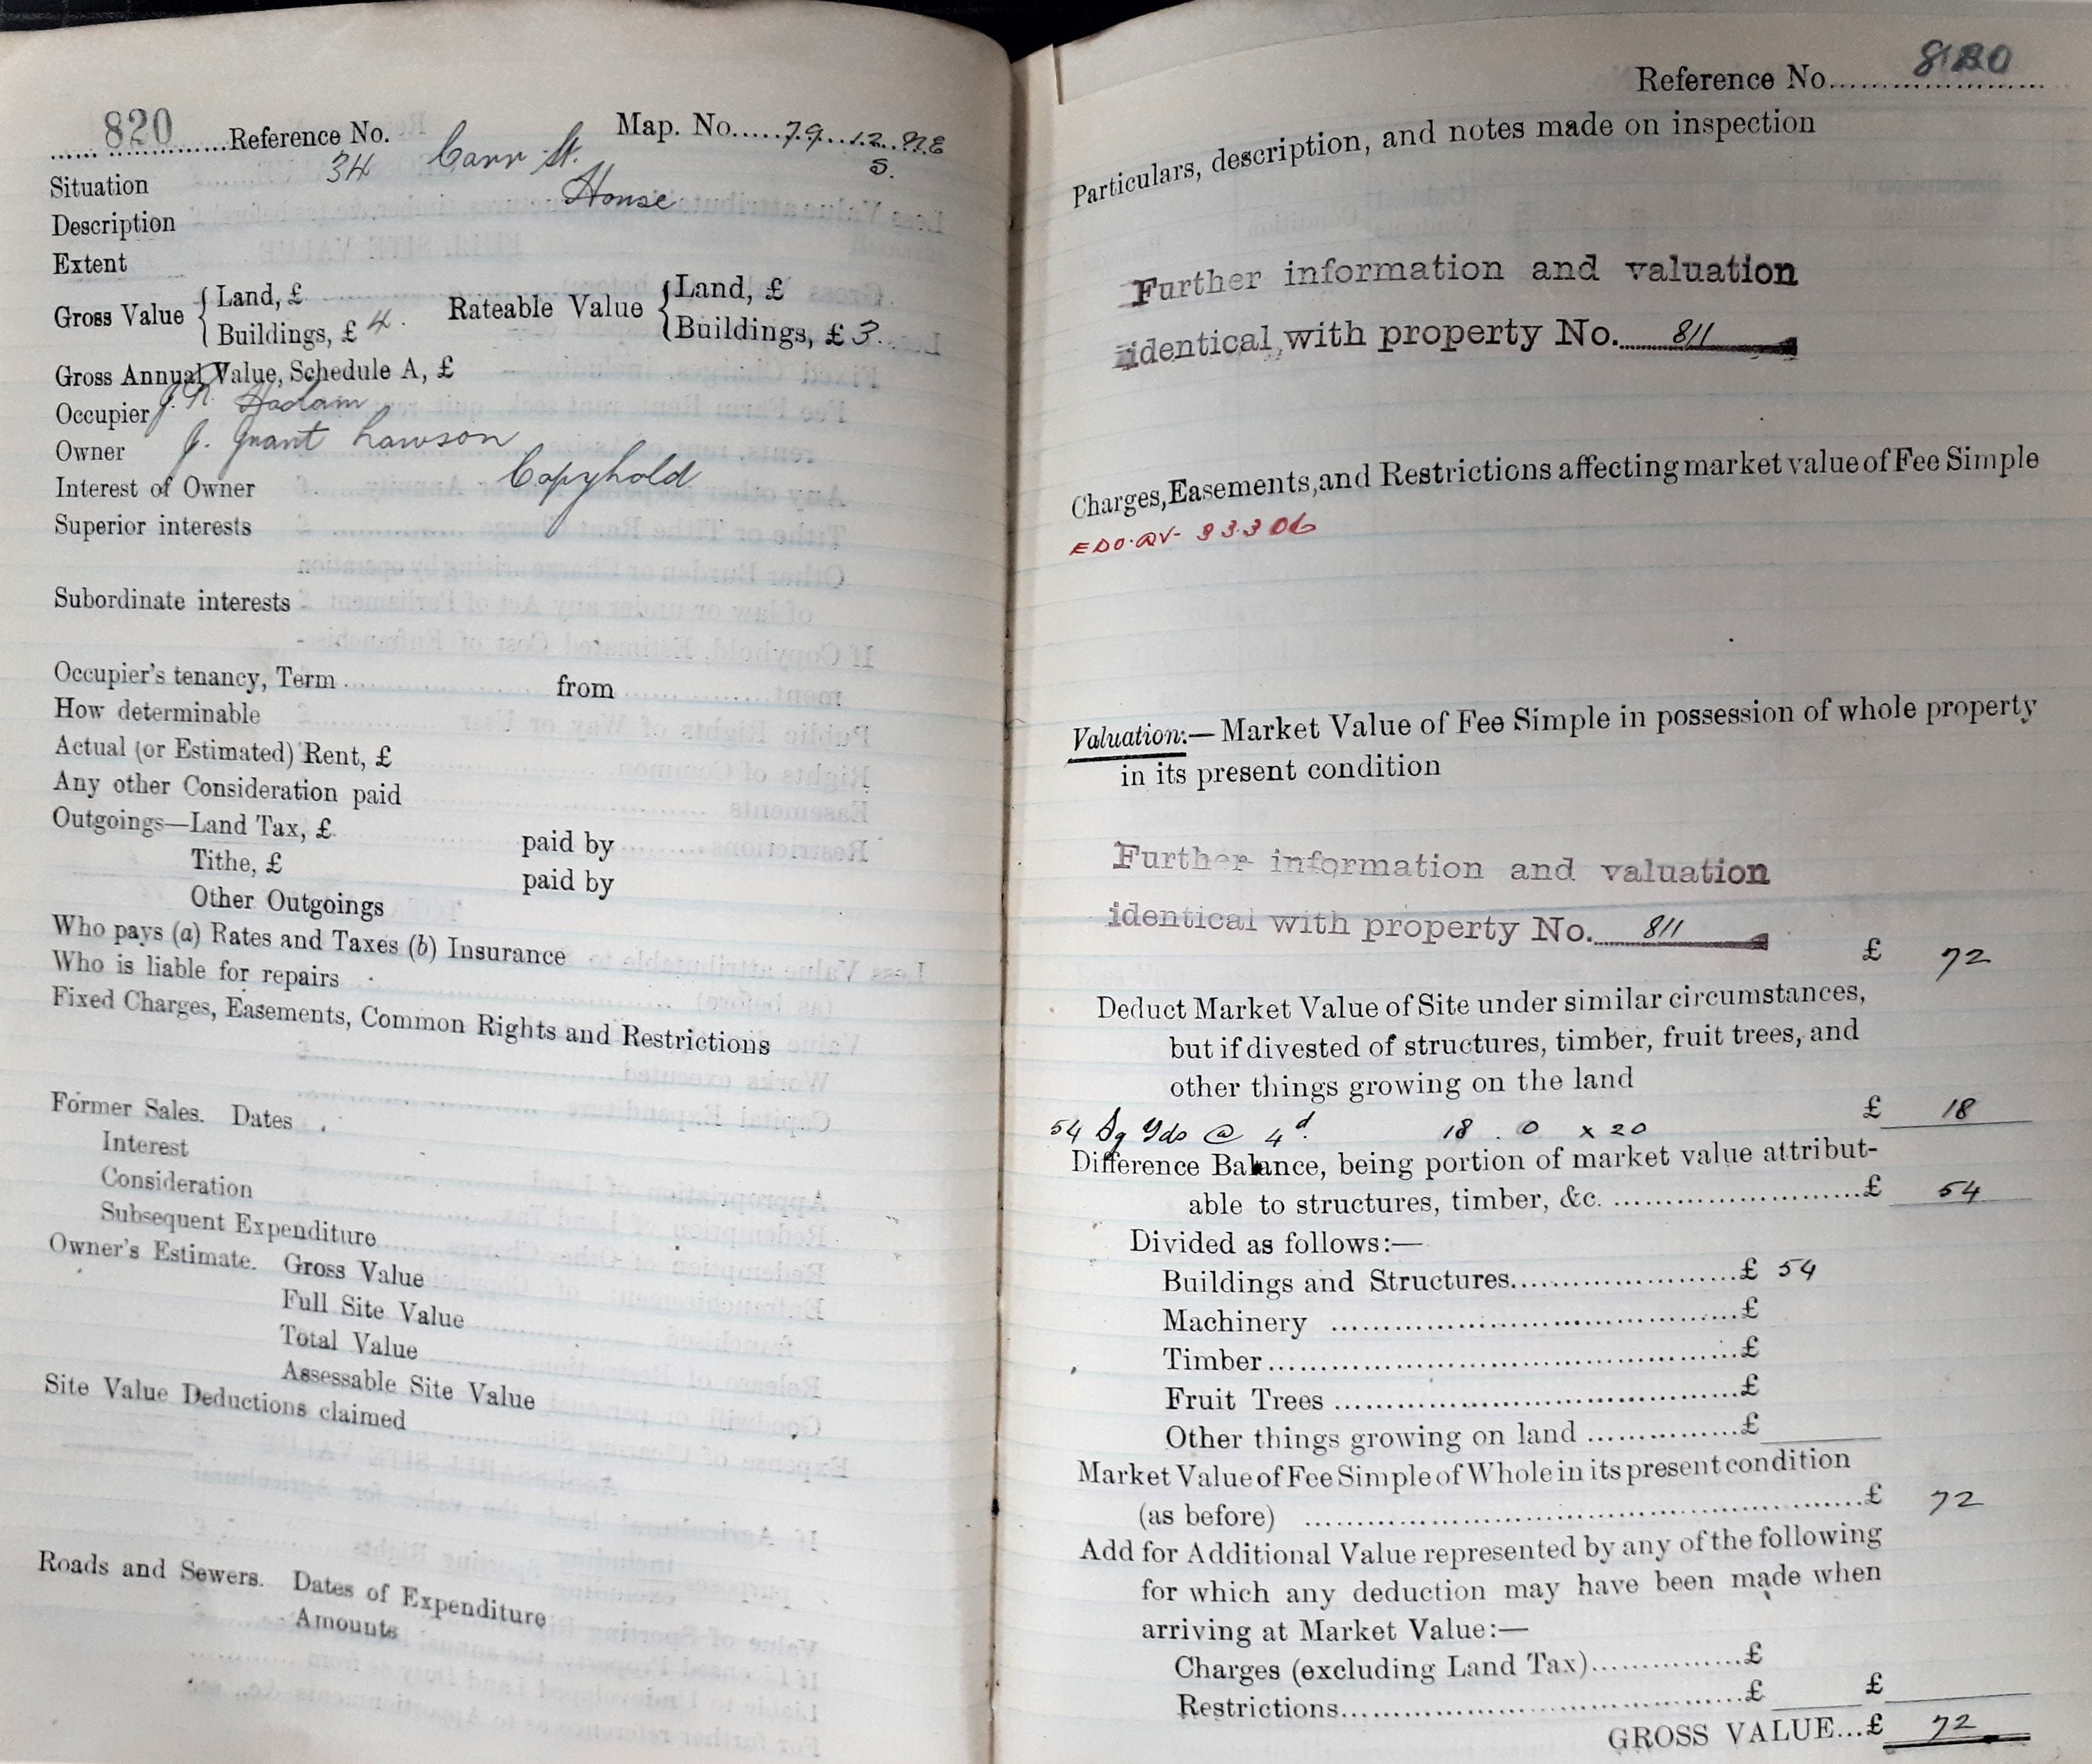 820 Reference No. Map. No. 79. 12. NE
S.
Situation 34 Carr St.
Description House
Extent
Gross Value { Land, £ Rateable Value { Land, £
Buildings, £ 4. Buildings, £ 3.
Gross Annual Value, Schedule A, £
Occupier Hodam
Owner J. Grant Lawson
Interest of Owner Copyhold
Superior interests
Subordinate interests
Occupier's tenancy, Term from
How determinable
Actual (or Estimated) Rent, £
Any other Consideration paid
Outgoings—Land Tax, £ paid by
Tithe, £ paid by
Other Outgoings
Who pays (a) Rates and Taxes (b) Insurance
Who is liable for repairs
Fixed Charges, Easements, Common Rights and Restrictions
Former Sales. Dates
Interest
Consideration
Subsequent Expenditure
Owner's Estimate. Gross Value
Full Site Value
Total Value
Assessable Site Value
Site Value Deductions claimed
Roads and Sewers. Dates of Expenditure
Amounts
Reference No. 820
Particulars, description, and notes made on inspection
Further information and valuation
identical with property No. 811
Charges, Easements, and Restrictions affecting market value of Fee Simple
Valuation:—Market Value of Fee Simple in possession of whole property
in its present condition
Further information and valuation
identical with property No. 811
£ 72
Deduct Market Value of Site under similar circumstances,
but if divested of structures, timber, fruit trees, and
other things growing on the land
£ 18
54 Sq Yds @ 4d. 18 . 0 x 20
Difference Balance, being portion of market value attribut-
able to structures, timber, &c. £ 54
Divided as follows:—
Buildings and Structures £ 54
Machinery £
Timber £
Fruit Trees £
Other things growing on land £
Market Value of Fee Simple of Whole in its present condition
(as before) £ 72
Add for Additional Value represented by any of the following
for which any deduction may have been made when
arriving at Market Value:—
Charges (excluding Land Tax) £
Restrictions £ £
GROSS VALUE...£ 72